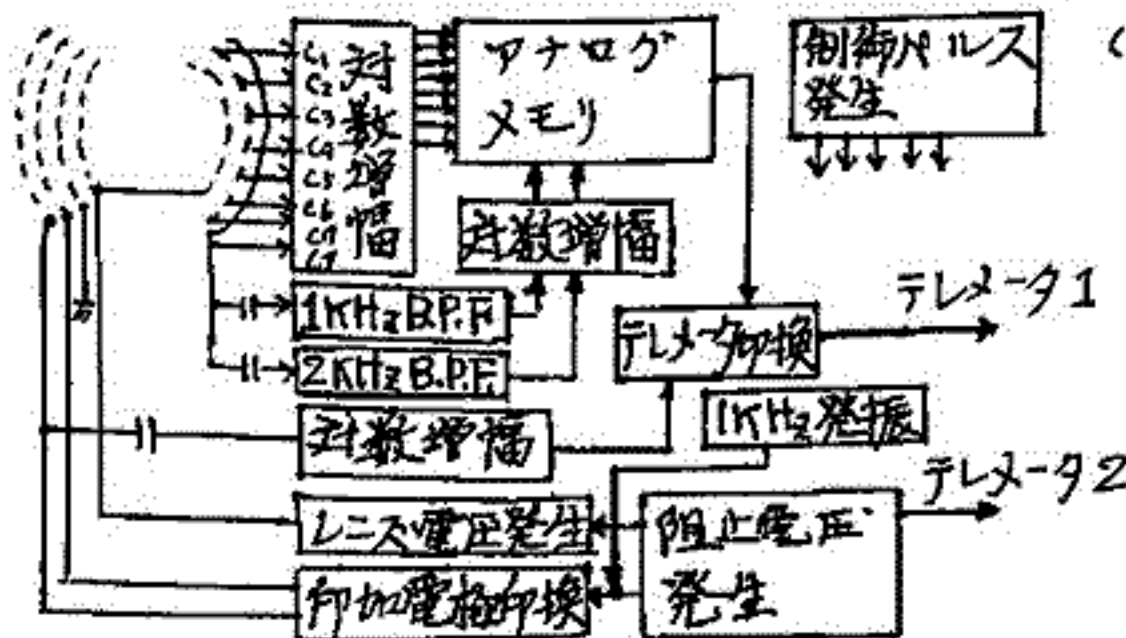 C1
C2
C3
C4
C5
C6
C7
対
数
増
幅
アナログ
メモリ
制御パルス
発生
対数増幅
1KHz B.P.F.
2KHz B.P.F.
テレメータ切換
テレメータ1
1KHz発振
対数増幅
テレメータ2
レンズ電圧発生
阻止電圧
発生
印加電極切換